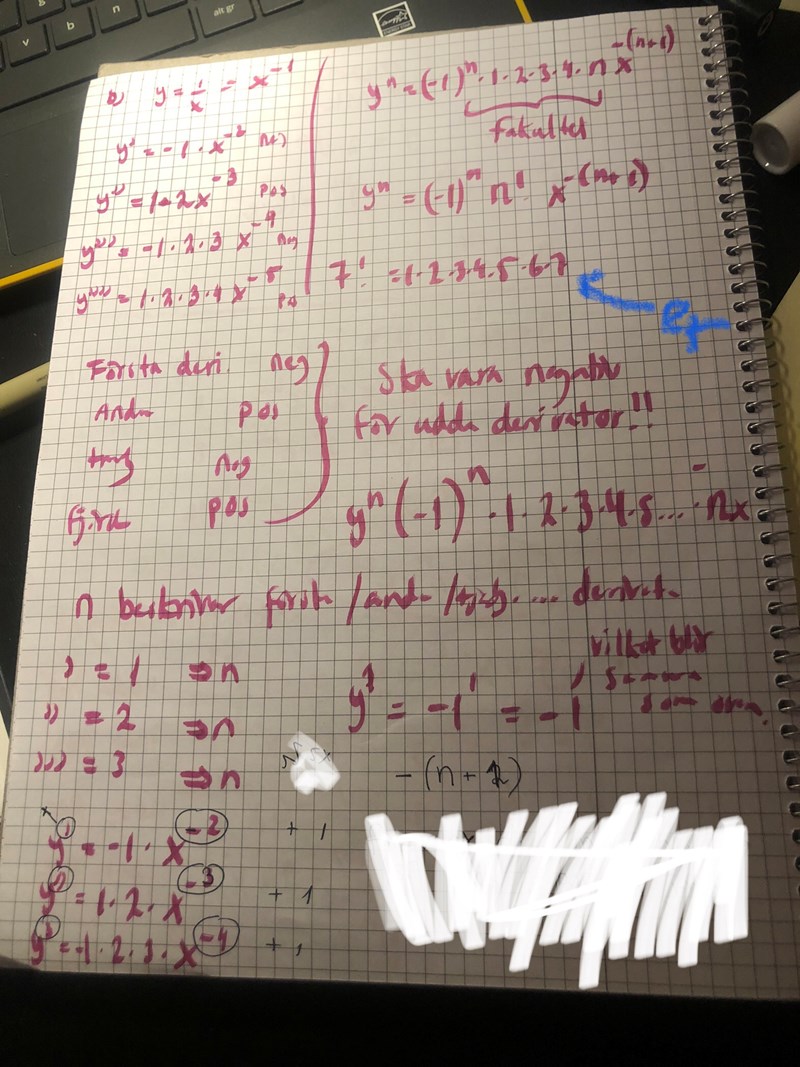 b) y = 1/x = x^-1
y' = -1 · x^-2 neg
y'' = 1 · 2x^-3 pos
y''' = -1 · 2 · 3 x^-4 neg
y'''' = 1 · 2 · 3 · 4 x^-5 pos
y^n = (-1)^n · 1 · 2 · 3 · 4 · n x^-(n+1)
fakultet
y^n = (-1)^n n! x^-(n+1)
7! = 1 · 2 · 3 · 4 · 5 · 6 · 7
Första deri. neg
Andra pos
neg
pos
Ska vara negativ
för udda derivator!!
y^n (-1)^n · 1 · 2 · 3 · 4 · 5 .... · nx^-
n beskriver första / andra / .... derivata
' = 1 ⇒ n
'' = 2 ⇒ n
''' = 3 ⇒ n
y^1 = -1^1 = -1
vilket blir
samma
som ovan.
- (n + 1)
y' = -1 · x^-2 + 1
y'' = 1 · 2 · x^-3 + 1
y^3 = -1 · 2 · 3 · x^-4 + 1
alt gr
v
b
n